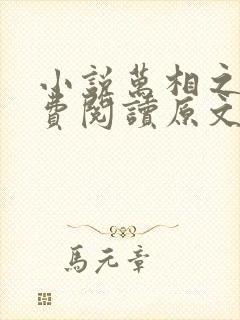 小說萬相之
費閱讀原文
馬元章